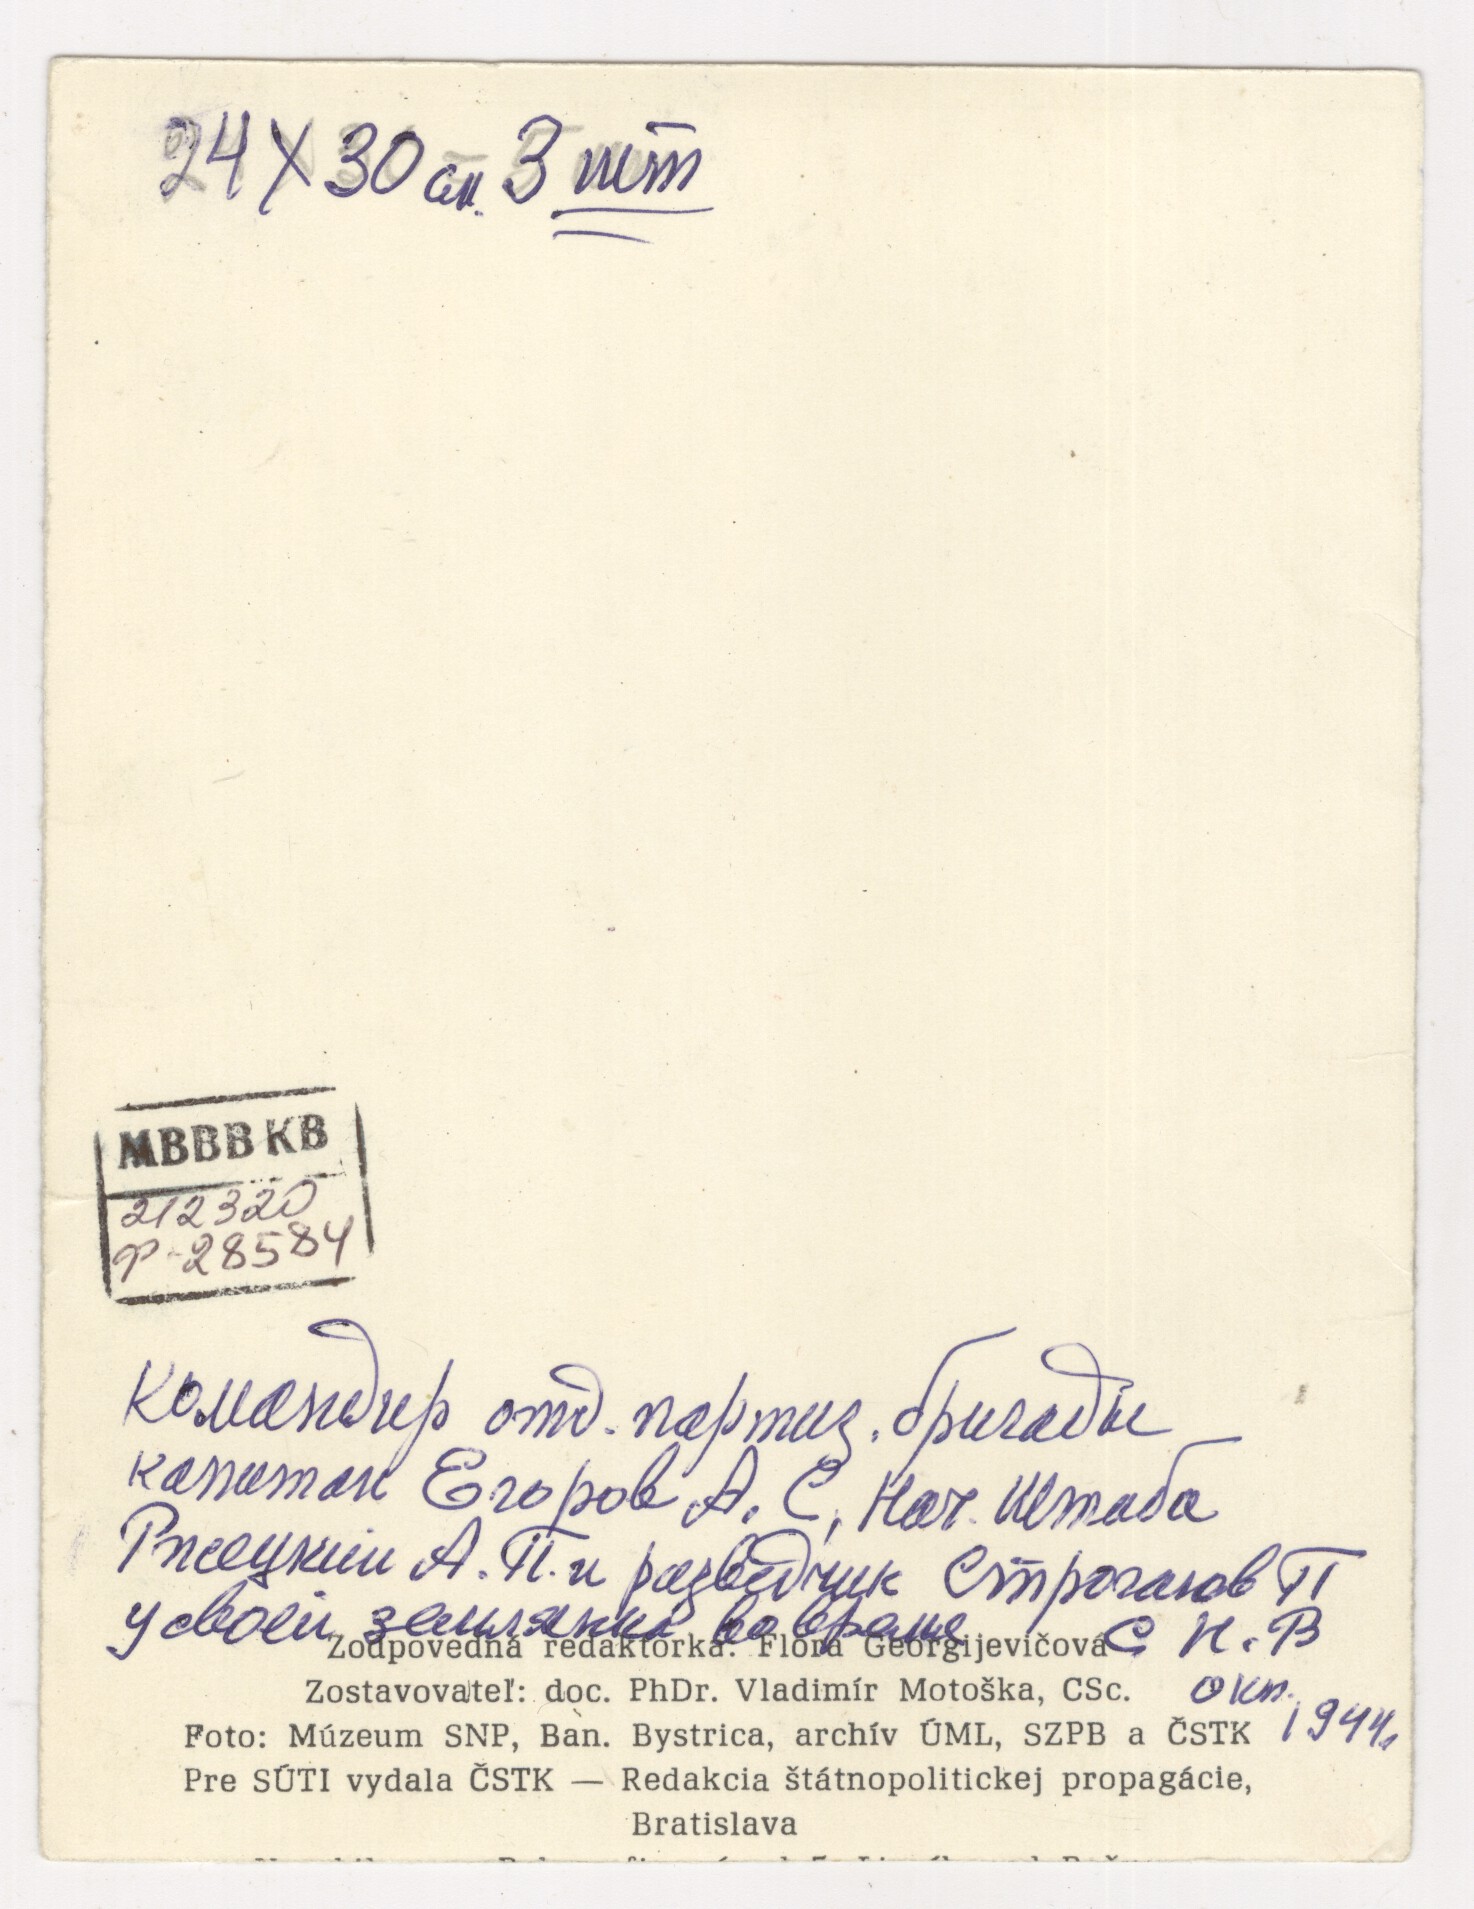 24 X 30 см. 3 шт
МВВВ КВ
212320
Ф-28584
Командир отд. партиз. бригады
капитан Егоров А. С, Нач. Штаба
Ржецкий А. П. и разведчик Строганов П
у своей землянки во время С Н. В
Zodpovedná redaktorka: Flóra Georgijevičová
окт. 1944г.
Zostavovateľ: doc. PhDr. Vladimír Motoška, CSc.
Foto: Múzeum SNP, Ban. Bystrica, archív ÚML, SZPB a ČSTK
Pre SÚTI vydala ČSTK — Redakcia štátnopolitickej propagácie,
Bratislava